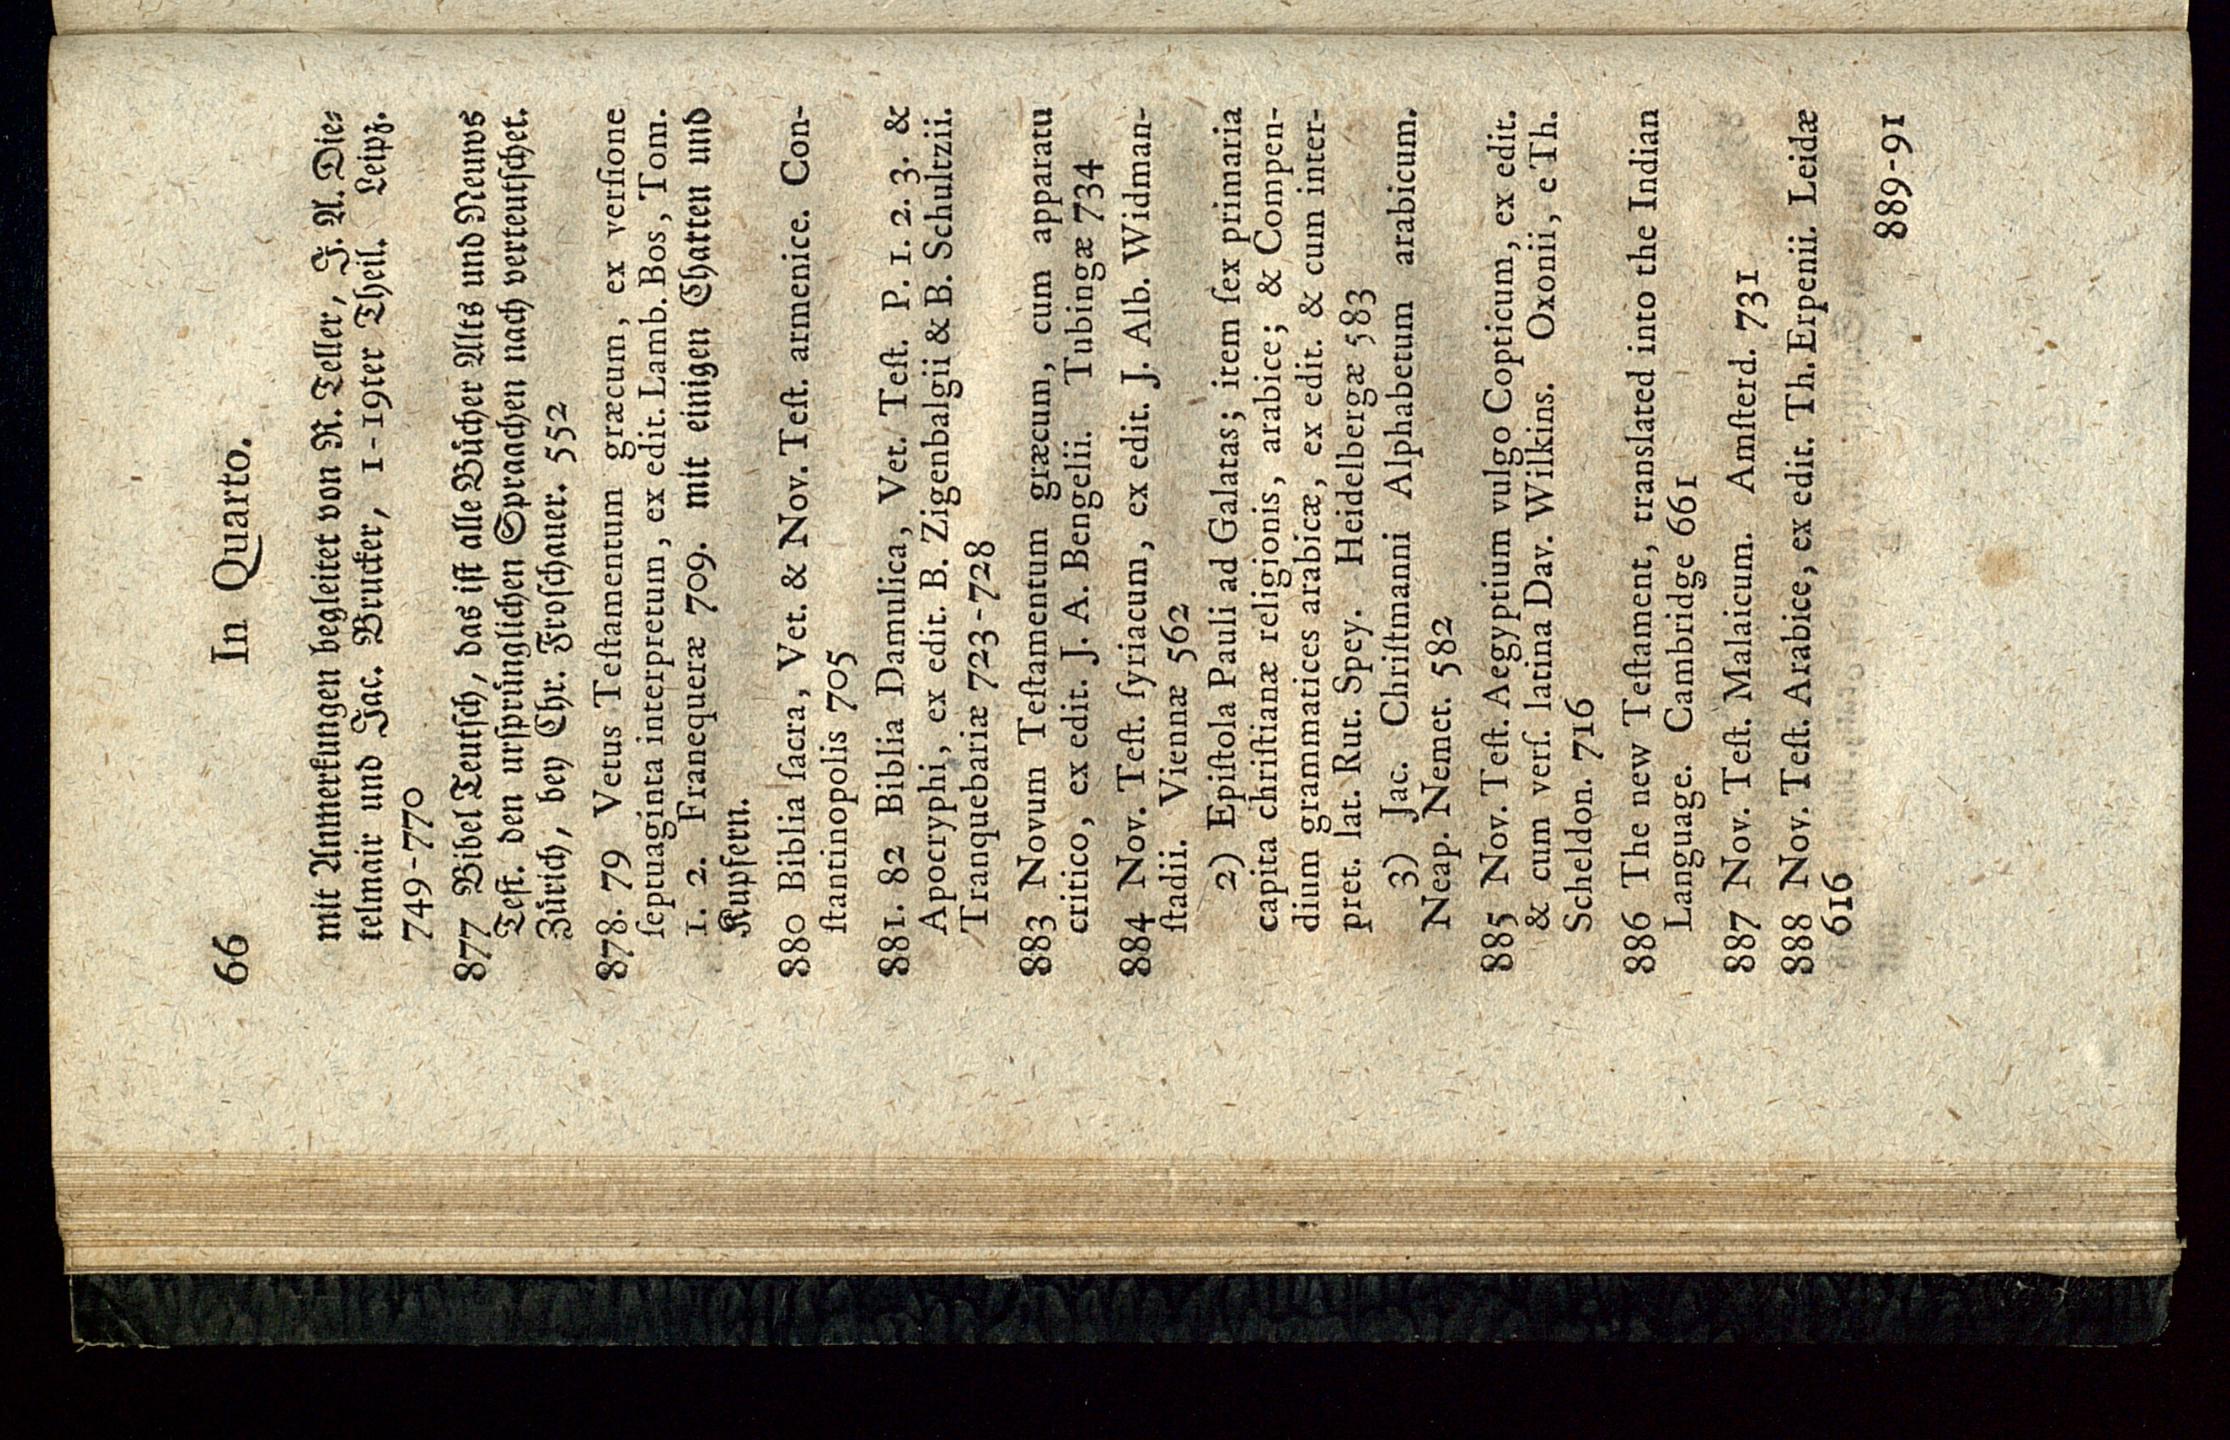 66 In Quarto.
mit Anmerkungen begleitet von R. Teller, J. A. Die⸗
telmair und Jac. Brucker, 1-19ter Theil. Leipz.
749-770
877 Bibel Teutsch, das ist alle Bůcher Alts und Neuws
Test. den ursprůnglichen Spraachen nach verteutschet.
Zůrich, bey Chr. Froschauer. 552
878. 79 Vetus Teſtamentum græcum, ex verſione
ſeptuaginta interpretum, ex edit. Lamb. Bos, Tom.
1. 2. Franequeræ 709. mit einigen Charten und
Kupfern.
880 Biblia ſacra, Vet. & Nov. Teſt. armenice. Con-
ſtantinopolis 705
881. 82 Biblia Damulica, Vet. Teſt. P. 1. 2. 3. &
Apocryphi, ex edit. B. Zigenbalgii & B. Schultzii.
Tranquebariæ 723-728
883 Novum Teſtamentum græcum, cum apparatu
critico, ex edit. J. A. Bengelii. Tubingæ 734
884 Nov. Teſt. ſyriacum, ex edit. J. Alb. Widman-
ſtadii. Viennæ 562
2) Epiſtola Pauli ad Galatas; item ſex primaria
capita chriſtianæ religionis, arabice; & Compen-
dium grammatices arabicæ, ex edit. & cum inter-
pret. lat. Rut. Spey. Heidelbergæ 583
3) Jac. Chriſtmanni Alphabetum arabicum.
Neap. Nemet. 582
885 Nov. Teſt. Aegyptium vulgo Copticum, ex edit.
& cum verſ. latina Dav. Wilkins. Oxonii, e Th.
Scheldon. 716
886 The new Teſtament, translated into the Indian
Language. Cambridge 661
887 Nov. Teſt. Malaicum. Amſterd. 731
888 Nov. Teſt. Arabice, ex edit. Th. Erpenii. Leidæ
616
889-91